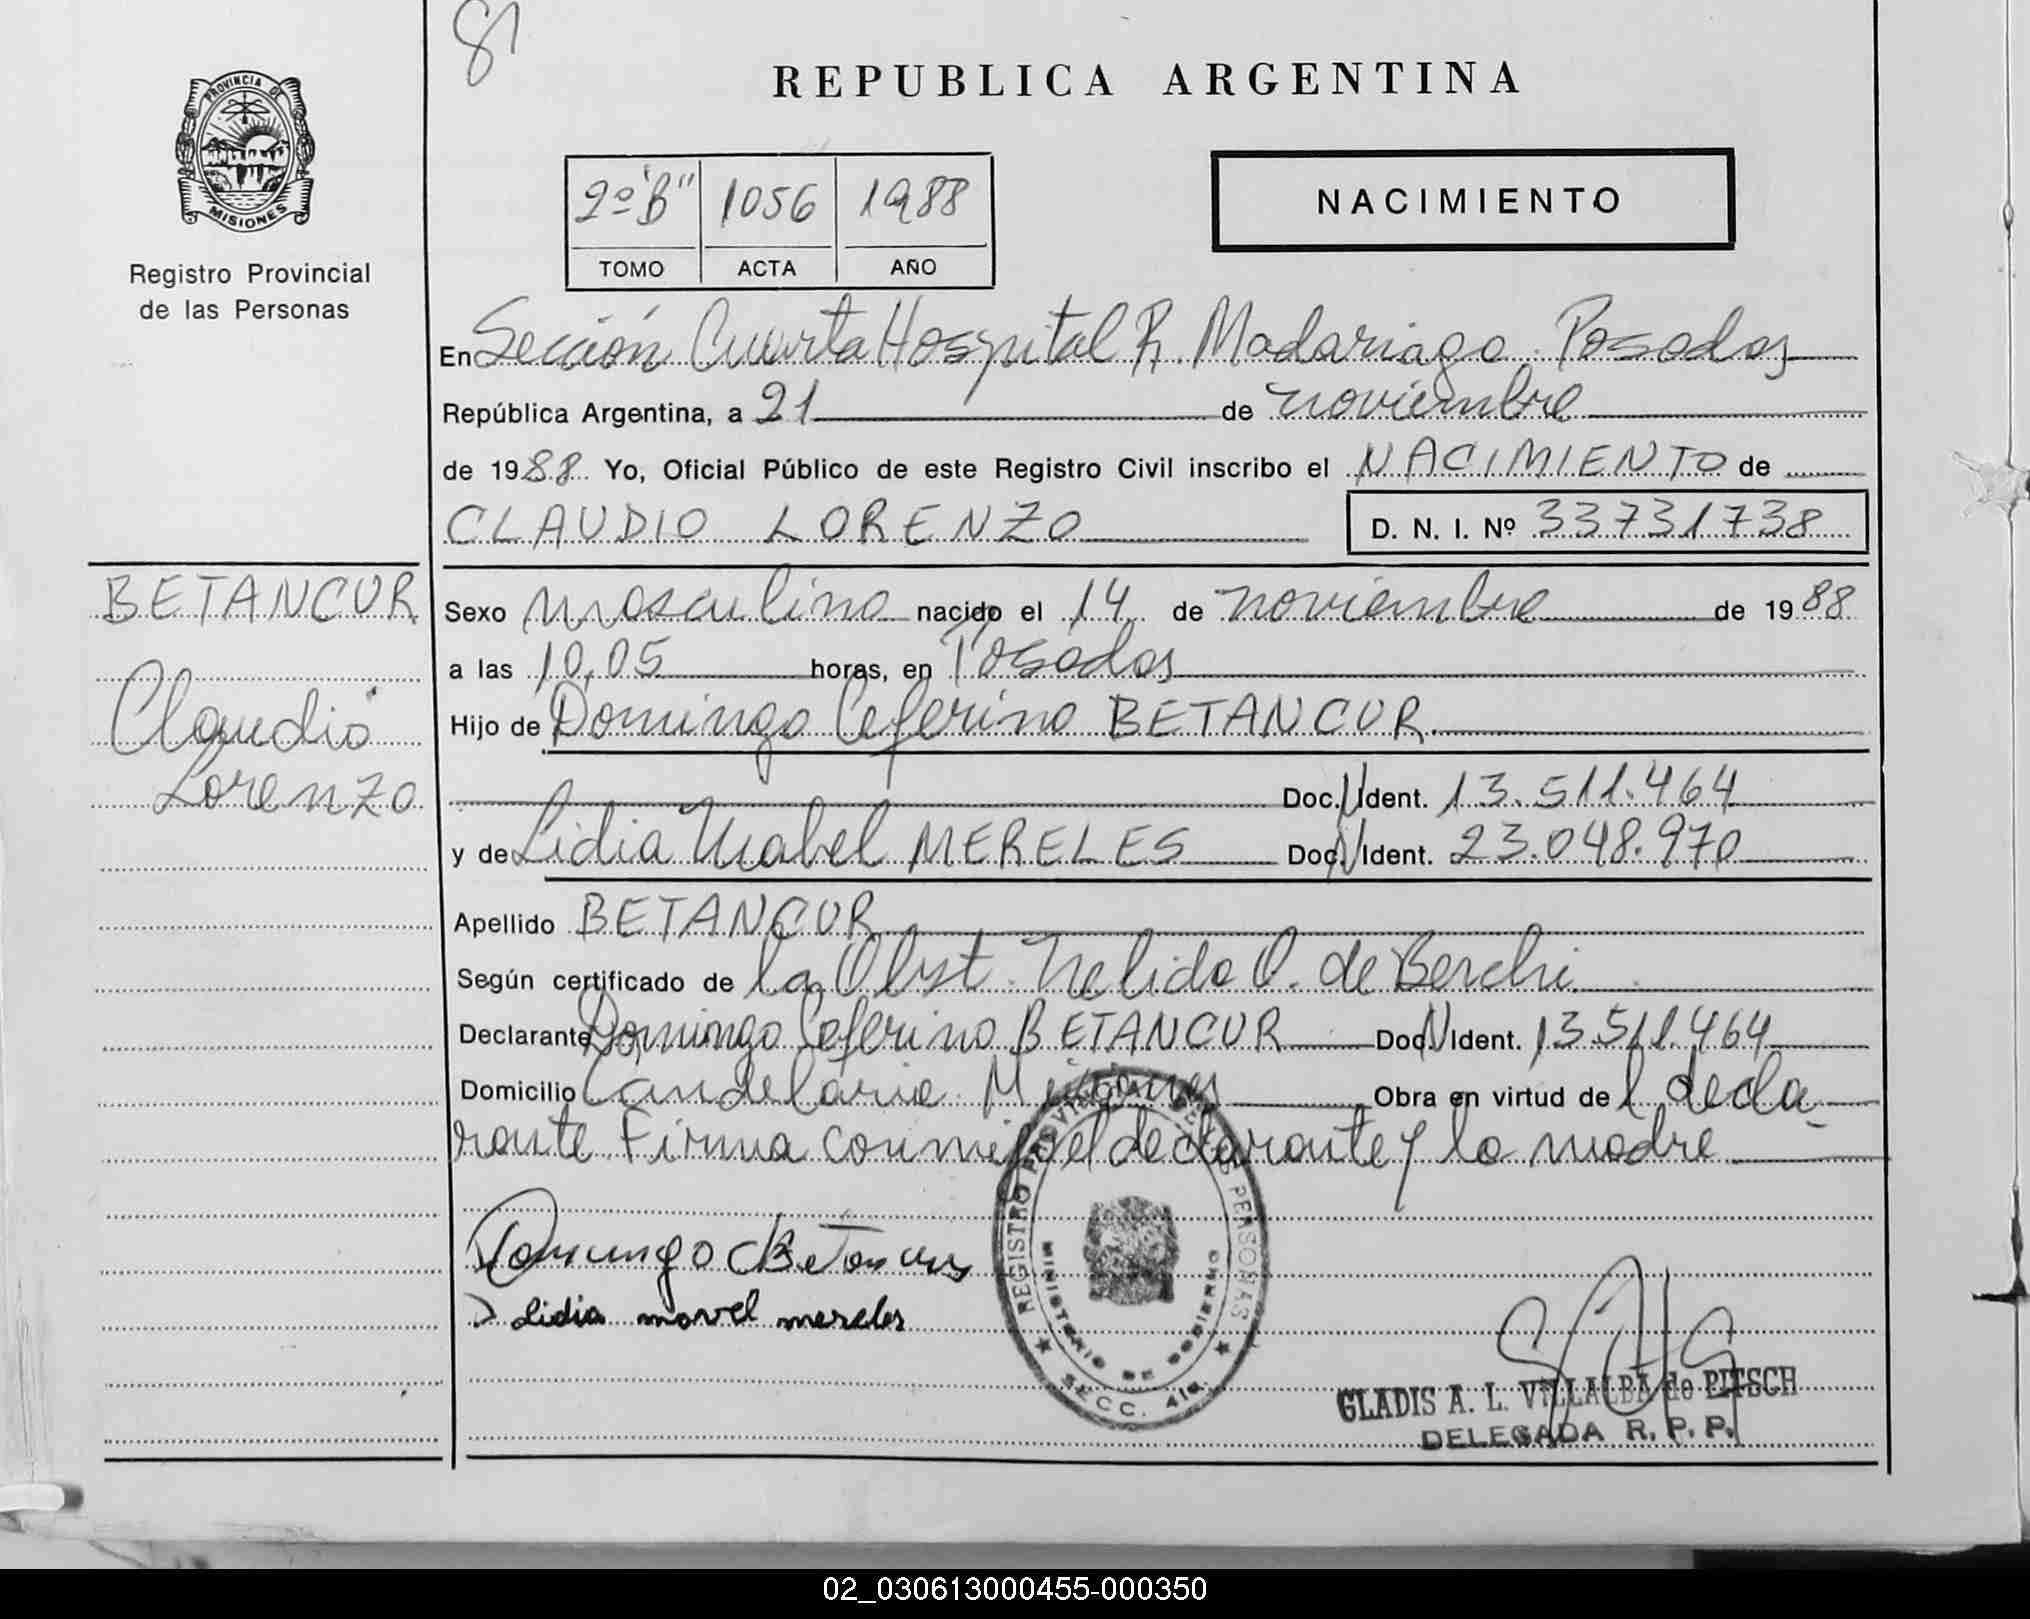 81
PROVINCIA DE
MISIONES
Registro Provincial
de las Personas
REPUBLICA ARGENTINA
2º "B" 1056 1988
TOMO ACTA AÑO
NACIMIENTO
En Sección Cuarta Hospital R. Madariaga. Posadas
República Argentina, a 21 de noviembre
de 1988 Yo, Oficial Público de este Registro Civil inscribo el NACIMIENTO de
CLAUDIO LORENZO D. N. I. Nº 33731738
BETANCUR
Claudio
Lorenzo
Sexo masculino nacido el 14 de noviembre de 1988
a las 10,05 horas, en Posadas
Hijo de Domingo Ceferino BETANCUR
Doc. N Ident. 13.511.464
y de Lidia Mabel MERELES Doc. N Ident. 23.048.970
Apellido BETANCUR
Según certificado de la Obst. Nelida O. de Berchi
Declarante Domingo Ceferino BETANCUR Doc N Ident. 13.511.464
Domicilio Candelaria. Misiones Obra en virtud de l decla
rante. Firma conmigo el declarante y la madre
Domingo C Betancur
Lidia mavel mereles
REGISTRO PROVINCIAL DE LAS PERSONAS
MINISTERIO DE GOBIERNO
SECC. 4ta.
GLADIS A. L. VILLALBA de PITSCH
DELEGADA R. P. P.
02_030613000455-000350